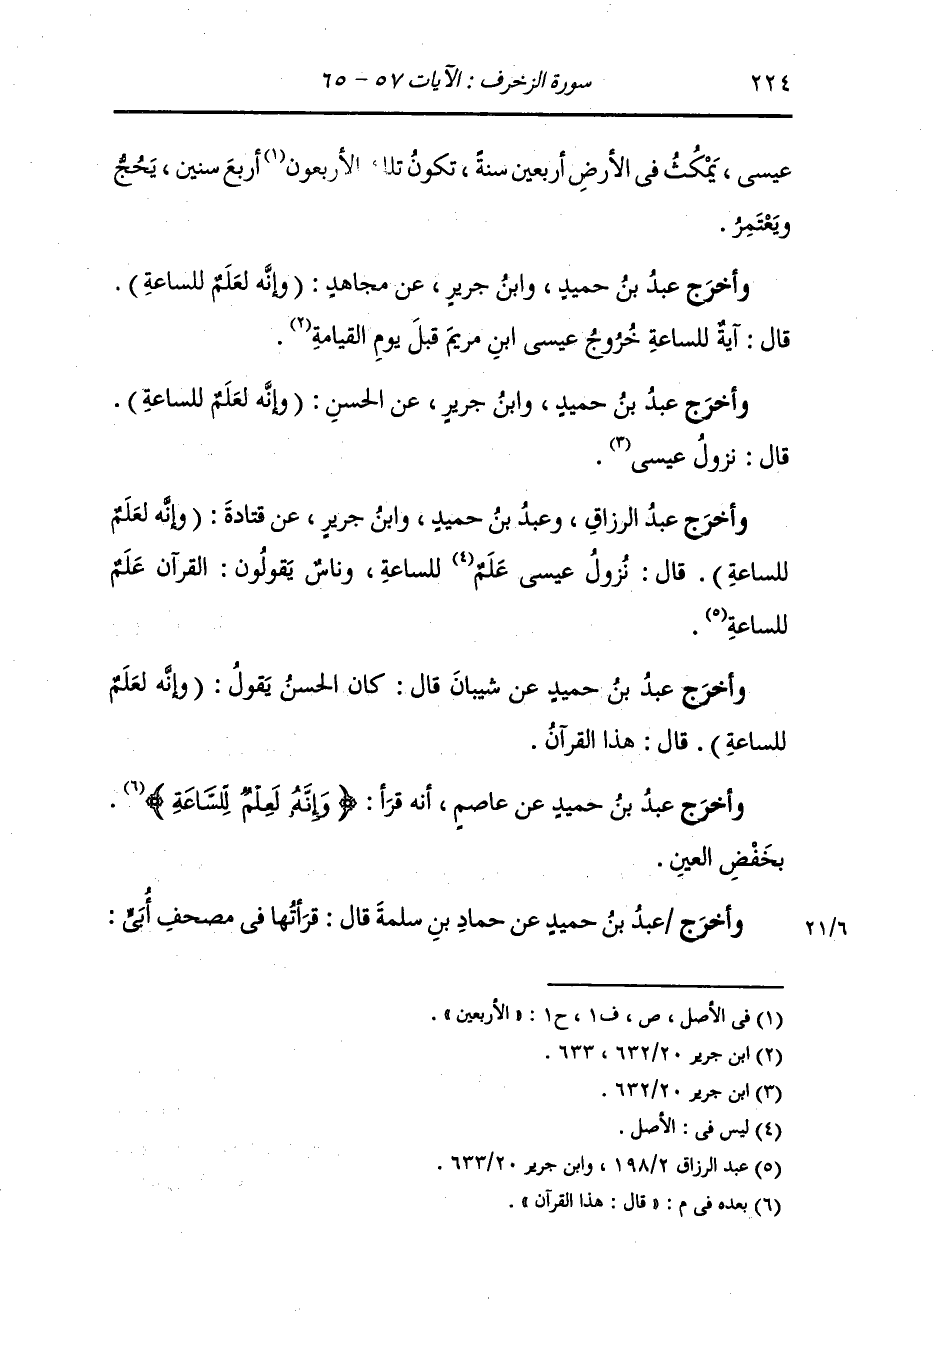 ٢٢٤ سورة الزخرف : الآيات ٥٧ - ٦٥
عيسى ، يَمْكُثُ فى الأرضِ أربعين سنةً ، تكونُ تلك الأربعون(١) أربعَ سنين ، يَحُجُّ
ويَعْتَمِرُ .
وأخرَج عبدُ بنُ حميدٍ ، وابنُ جريرٍ ، عن مجاهدٍ : ( وإنَّه لعَلَمٌ للساعةِ ) .
قال : آيةٌ للساعةِ خُرُوجُ عيسى ابنِ مريمَ قبلَ يومِ القيامةِ(٢) .
وأخرَج عبدُ بنُ حميدٍ ، وابنُ جريرٍ ، عن الحسنِ : ( وإنَّه لعَلَمٌ للساعةِ ) .
قال : نزولُ عيسى(٣) .
وأخرَج عبدُ الرزاقِ ، وعبدُ بنُ حميدٍ ، وابنُ جريرٍ ، عن قتادةَ : ( وإنَّه لعَلَمٌ
للساعةِ ) . قال : نُزولُ عيسى عَلَمٌ(٤) للساعةِ ، وناسٌ يَقولُون : القرآن عَلَمٌ
للساعةِ(٥) .
وأخرَج عبدُ بنُ حميدٍ عن شيبانَ قال : كان الحسنُ يَقولُ : ( وإنَّه لعَلَمٌ
للساعةِ ) . قال : هذا القرآنُ .
وأخرَج عبدُ بنُ حميدٍ عن عاصمٍ ، أنه قرَأ : ﴿ وَإِنَّهُۥ لَعِلْمٌ لِّلسَّاعَةِ ﴾(٦) .
بخَفْضِ العينِ .
وأخرَج /عبدُ بنُ حميدٍ عن حمادِ بنِ سلمةَ قال : قرَأتُها فى مصحفِ أُبَىٍّ : ٢١/٦
(١) فى الأصل ، ص ، ف١ ، ح١ : « الأربعين » .
(٢) ابن جرير ٦٣٢/٢٠ ، ٦٣٣ .
(٣) ابن جرير ٦٣٢/٢٠ .
(٤) ليس فى : الأصل .
(٥) عبد الرزاق ١٩٨/٢ ، وابن جرير ٦٣٣/٢٠ .
(٦) بعده فى م : « قال : هذا القرآن » .